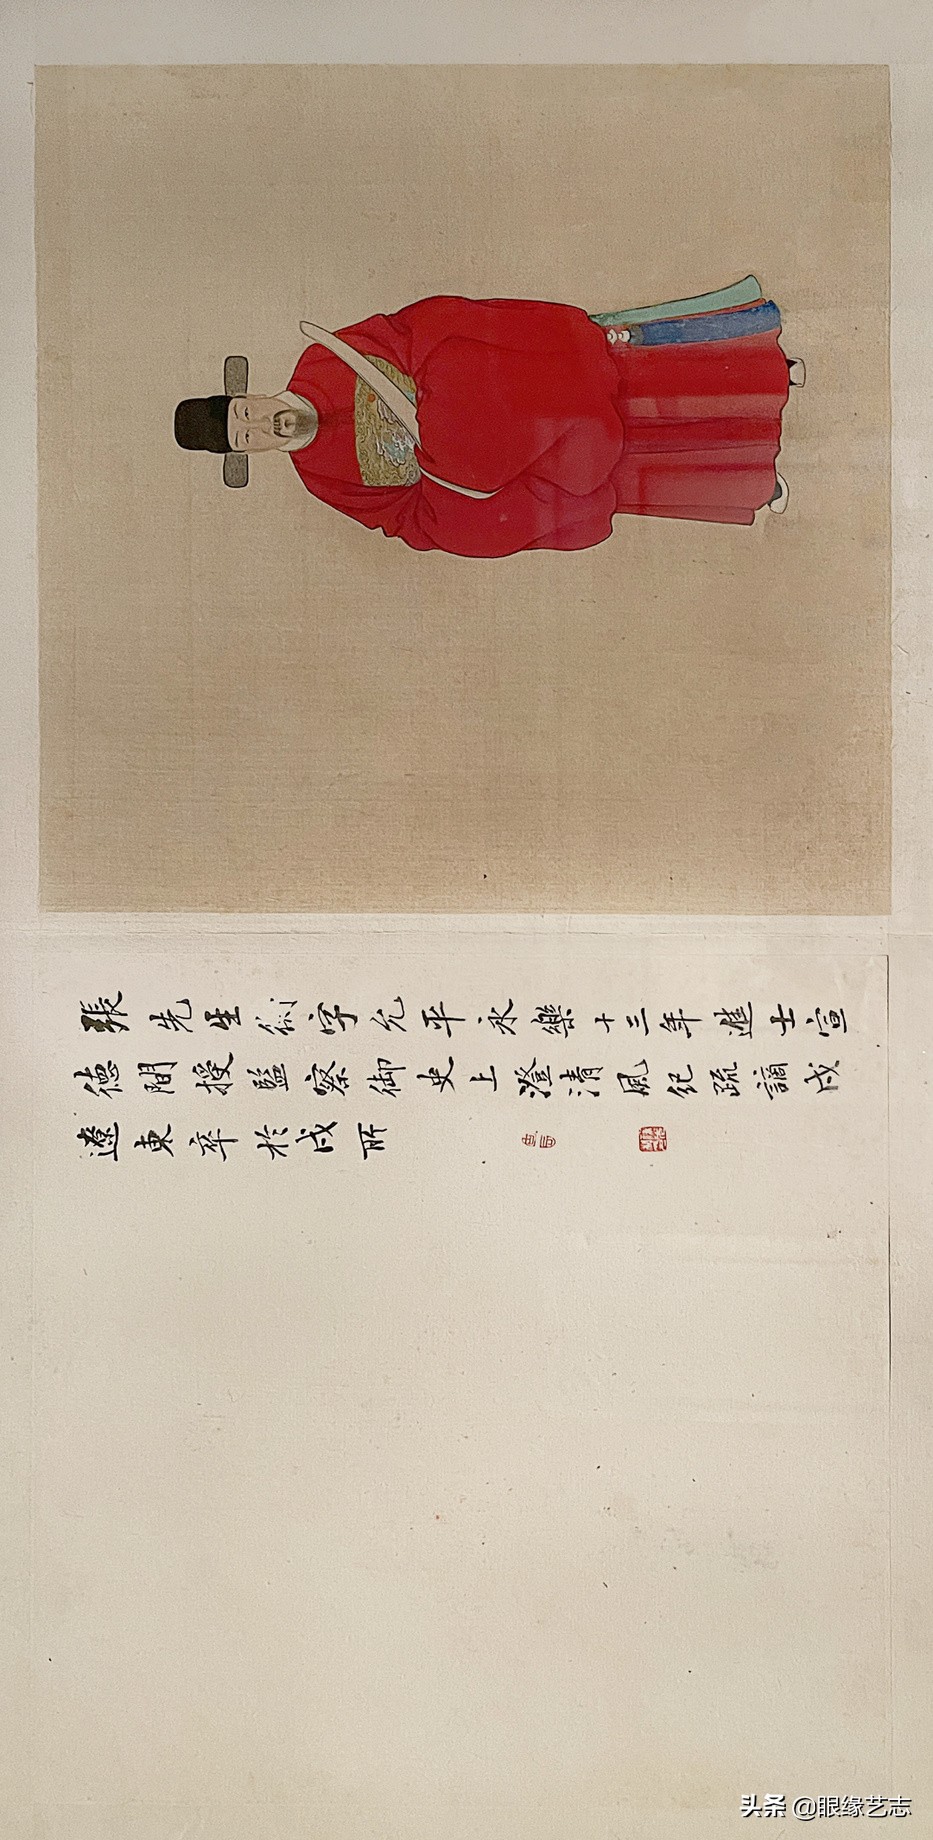 張先生字允平永樂十三年進士宣
德間授監察御史上澄清風紀疏謫戍
遼東卒於戍所
头条 @眼缘艺志